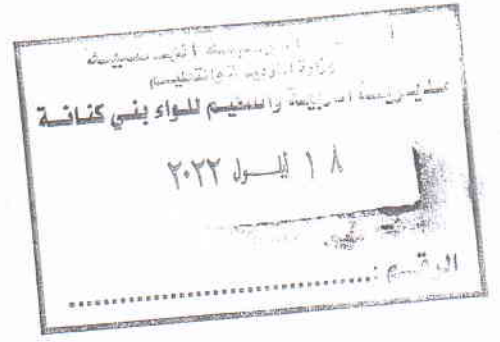 وزارة التربية والتعليم
مديرية التربية والتعليم للواء بني كنانة
١٨ أيلول ٢٠٢٢
الرقم :..............................